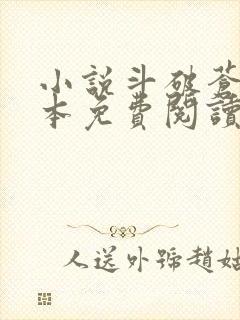 小說斗破蒼
本免費閱讀
人送外號趙姑